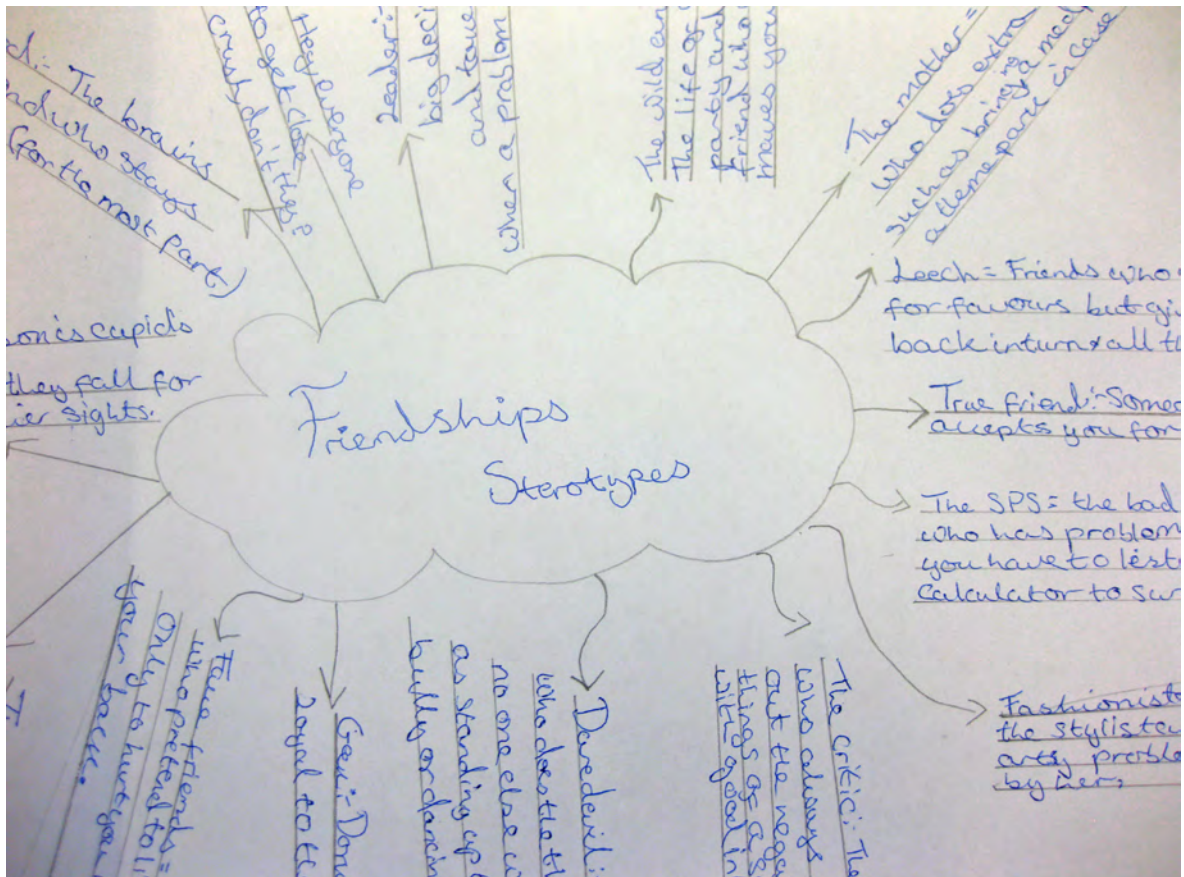 Friendships
Sterotypes
The brains
who stays
(for the most part.)
Hey everyone
to get close
crush, don't they?
Leader:-
big deci
and take
when a problem
The wild an
The life of
party and
friend who
makes you
The mother =
who does extra
such as bringing a med
a theme park in case
Leech = Friends who
for favours but gi
back in turn & all th
True friend:- Some
accepts you for
The SPS = the bad
who has problem
you have to lest
calculator to sur
Fashionist
the stylis
arty proble
by her,
The critic:- The
who always
out the nega
things of a s
with good in
Daredevil:
who does the th
no one else w
as standing up t
bully or dancin
Gem:- Don
Loyal to th
Fake friends =
who pretend to li
Only to hurt you
your back.
cupids
they fall for
sights.